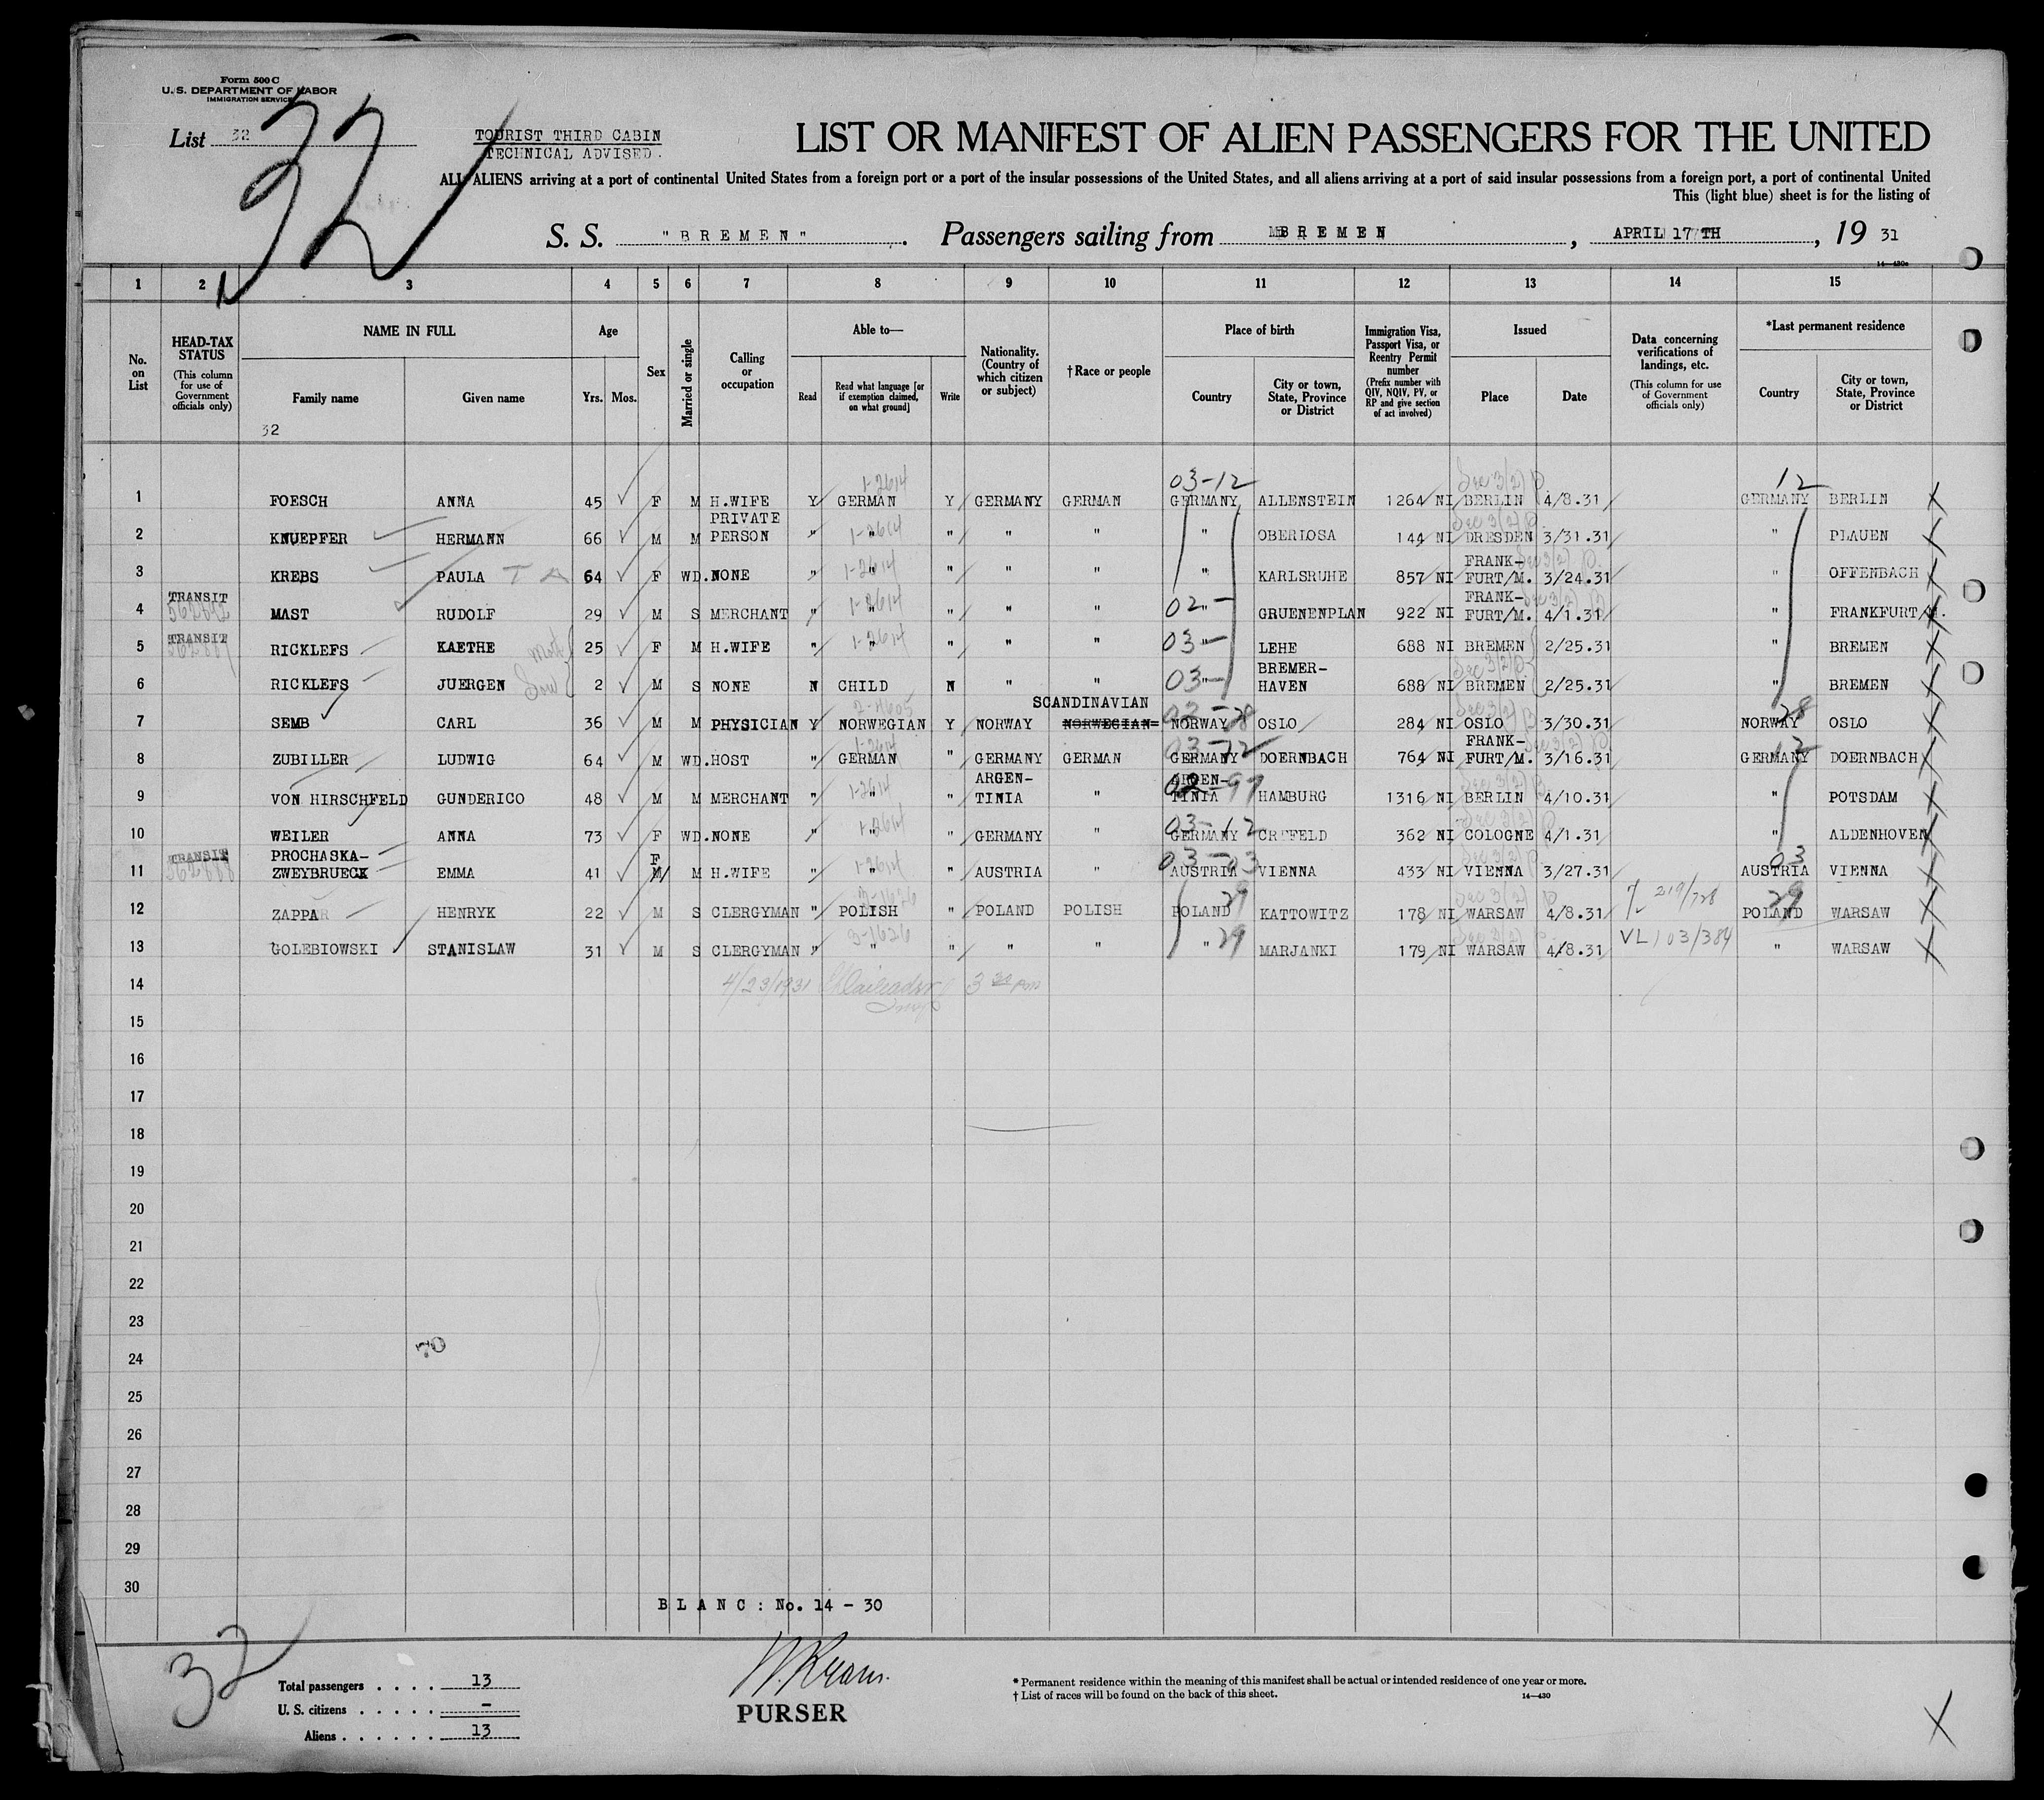 Form 500 C
U. S. DEPARTMENT OF LABOR
IMMIGRATION SERVICE
List 32
32
TOURIST THIRD CABIN
TECHNICAL ADVISED.
LIST OR MANIFEST OF ALIEN PASSENGERS FOR THE UNITED
ALL ALIENS arriving at a port of continental United States from a foreign port or a port of the insular possessions of the United States, and all aliens arriving at a port of said insular possessions from a foreign port, a port of continental United
This (light blue) sheet is for the listing of
S. S. "BREMEN". Passengers sailing from BREMEN, APRIL 17TH, 19 31
14—430a
1 2 3 4 5 6 7 8 9 10 11 12 13 14 15
No. on List
HEAD-TAX STATUS (This column for use of Government officials only)
NAME IN FULL
Family name
Given name
32
Age
Yrs. Mos.
Sex
Married or single
Calling or occupation
Able to—
Read
Read what language [or if exemption claimed, on what ground]
Write
Nationality. (Country of which citizen or subject)
† Race or people
Place of birth
Country
City or town, State, Province or District
Immigration Visa, Passport Visa, or Reentry Permit number (Prefix number with QIV, NQIV, PV, or RP and give section of act involved)
Issued
Place
Date
Data concerning verifications of landings, etc. (This column for use of Government officials only)
*Last permanent residence
Country
City or town, State, Province or District
1-2614 03-12 Sec 3(2) 12
1 FOESCH ANNA 45 F M H.WIFE Y GERMAN Y GERMANY GERMAN GERMANY ALLENSTEIN 1264 NI BERLIN 4/8.31 GERMANY BERLIN
2 KNUEPFER HERMANN 66 M M PRIVATE PERSON " " " " " " OBERLOSA 144 NI DRESDEN 3/31.31 " PLAUEN
3 KREBS PAULA T A 64 F WD. NONE " " " " " " KARLSRUHE 857 NI FRANK-FURT/M. 3/24.31 " OFFENBACH
TRANSIT
4 MAST RUDOLF 29 M S MERCHANT " " " " " 02- " GRUENENPLAN 922 NI FRANK-FURT/M. 4/1.31 " FRANKFURT/M.
TRANSIT
5 RICKLEFS KAETHE 25 F M H.WIFE " " " " " 03- " LEHE 688 NI BREMEN 2/25.31 " BREMEN
6 RICKLEFS JUERGEN Son 2 M S NONE N CHILD N " " 03- " BREMER-HAVEN 688 NI BREMEN 2/25.31 " BREMEN
7 SEMB CARL 36 M M PHYSICIAN Y NORWEGIAN Y NORWAY SCANDINAVIAN NORWEGIAN NORWAY 28 OSLO 284 NI OSLO 3/30.31 NORWAY 28 OSLO
8 ZUBILLER LUDWIG 64 M WD. HOST " GERMAN " GERMANY GERMAN 03-12 GERMANY DOERNBACH 764 NI FRANK-FURT/M. 3/16.31 GERMANY 12 DOERNBACH
9 VON HIRSCHFELD GUNDERICO 48 M M MERCHANT " " " ARGEN-TINIA " ARGEN-TINIA HAMBURG 1316 NI BERLIN 4/10.31 " POTSDAM
10 WEILER ANNA 73 F WD. NONE " " " GERMANY " 03-12 GERMANY CREFELD 362 NI COLOGNE 4/1.31 " ALDENHOVEN
TRANSIT
11 PROCHASKA-ZWEYBRUECK EMMA 41 F M H.WIFE " " " AUSTRIA " 03-03 AUSTRIA VIENNA 433 NI VIENNA 3/27.31 03 AUSTRIA VIENNA
12 ZAPPA HENRYK 22 M S CLERGYMAN " POLISH " POLAND POLISH POLAND 29 KATTOWITZ 178 NI WARSAW 4/8.31 POLAND 29 WARSAW
13 GOLEBIOWSKI STANISLAW 31 M S CLERGYMAN " " " " " " 29 MARJANKI 179 NI WARSAW 4/8.31 VL 103/384 " WARSAW
14 4/23/1931 3 30 pm
15
16
17
18
19
20
21
22
23
24
25
26
27
28
29
30
70
BLANC: No. 14 - 30
32
Total passengers .... 13
U. S. citizens ..... -
Aliens ...... 13
PURSER
* Permanent residence within the meaning of this manifest shall be actual or intended residence of one year or more.
† List of races will be found on the back of this sheet.
14—430